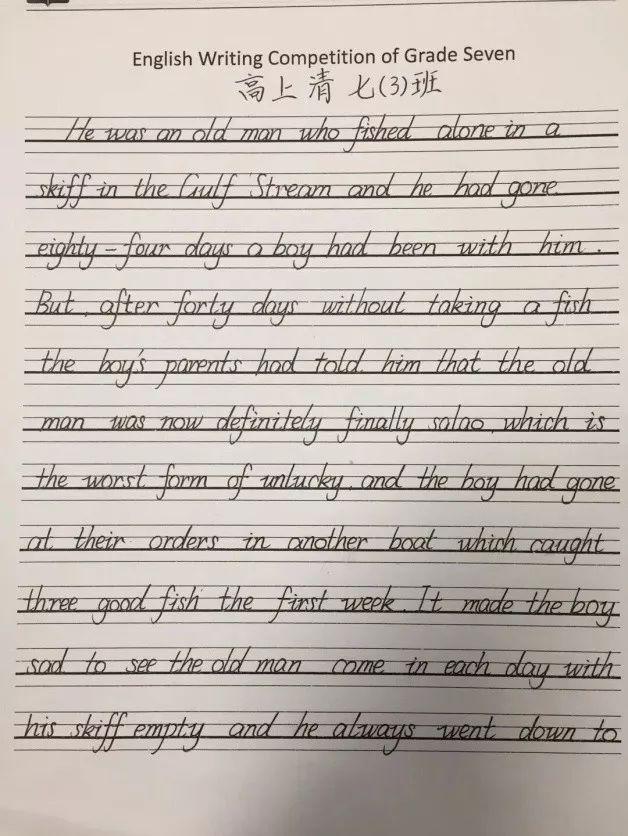 English Writing Competition of Grade Seven
高上清 七(3)班
He was an old man who fished alone in a
skiff in the Gulf Stream and he had gone
eighty-four days a boy had been with him.
But, after forty days without taking a fish
the boy's parents had told him that the old
man was now definitely finally salao, which is
the worst form of unlucky, and the boy had gone
at their orders in another boat which caught
three good fish the first week. It made the boy
sad to see the old man come in each day with
his skiff empty and he always went down to